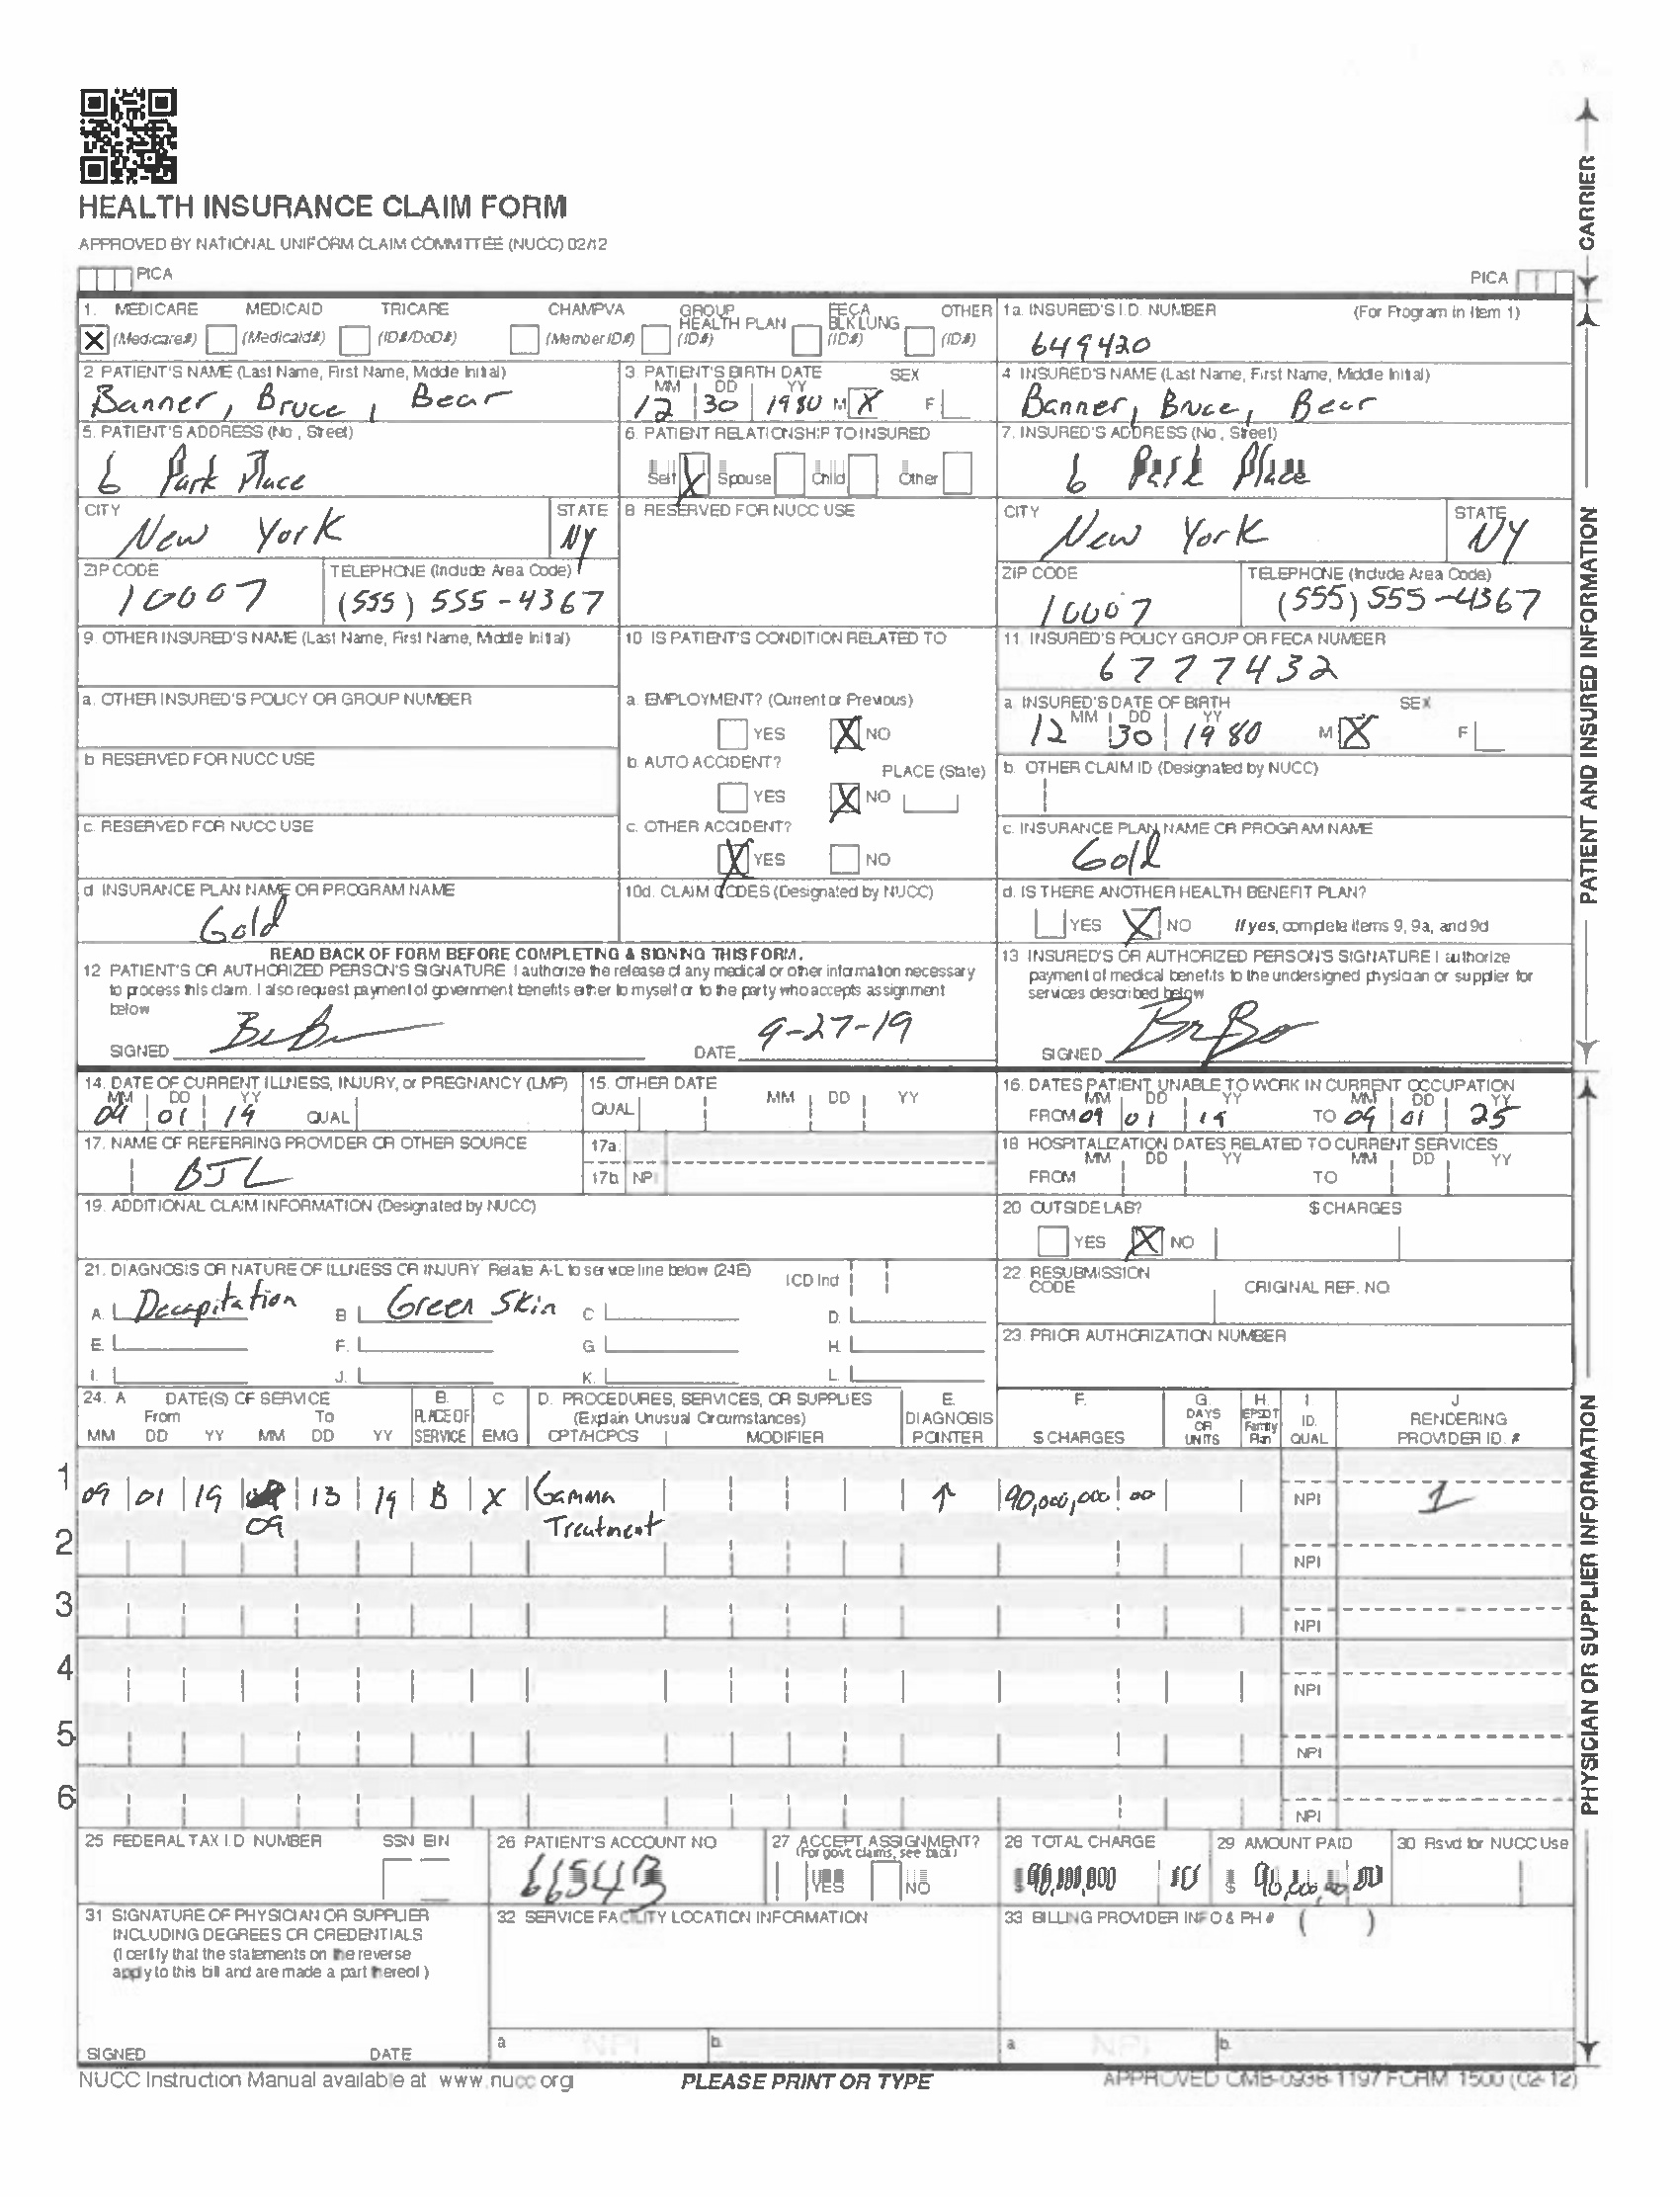 HEALTH INSURANCE CLAIM FORM
APPROVED BY NATIONAL UNIFORM CLAIM COMMITTEE (NUCC) 02/12
PICA PICA
CARRIER
1. MEDICARE MEDICAID TRICARE CHAMPVA GROUP HEALTH PLAN FECA BLK LUNG OTHER
X (Medicare#) (Medicaid#) (ID#/DoD#) (Member ID#) (ID#) (ID#) (ID#)
1a. INSURED'S I.D. NUMBER (For Program in Item 1)
649420
2. PATIENT'S NAME (Last Name, First Name, Middle Initial)
Banner, Bruce, Bear
3. PATIENT'S BIRTH DATE SEX
MM DD YY
12 30 1980 M X F
4. INSURED'S NAME (Last Name, First Name, Middle Initial)
Banner, Bruce, Bear
5. PATIENT'S ADDRESS (No., Street)
6 Park Place
6. PATIENT RELATIONSHIP TO INSURED
Self X Spouse Child Other
7. INSURED'S ADDRESS (No., Street)
6 Park Place
CITY STATE
New York NY
8. RESERVED FOR NUCC USE
CITY STATE
New York NY
ZIP CODE TELEPHONE (Include Area Code)
10007 (555) 555-4367
ZIP CODE TELEPHONE (Include Area Code)
10007 (555) 555-4367
9. OTHER INSURED'S NAME (Last Name, First Name, Middle Initial)
10. IS PATIENT'S CONDITION RELATED TO
11. INSURED'S POLICY GROUP OR FECA NUMBER
6777432
a. OTHER INSURED'S POLICY OR GROUP NUMBER
a. EMPLOYMENT? (Current or Previous)
YES X NO
a. INSURED'S DATE OF BIRTH SEX
MM DD YY
12 30 1980 M X F
b. RESERVED FOR NUCC USE
b. AUTO ACCIDENT? PLACE (State)
YES X NO
b. OTHER CLAIM ID (Designated by NUCC)
c. RESERVED FOR NUCC USE
c. OTHER ACCIDENT?
X YES NO
c. INSURANCE PLAN NAME OR PROGRAM NAME
Gold
d. INSURANCE PLAN NAME OR PROGRAM NAME
Gold
10d. CLAIM CODES (Designated by NUCC)
d. IS THERE ANOTHER HEALTH BENEFIT PLAN?
YES X NO If yes, complete items 9, 9a, and 9d
READ BACK OF FORM BEFORE COMPLETING & SIGNING THIS FORM.
12. PATIENT'S OR AUTHORIZED PERSON'S SIGNATURE I authorize the release of any medical or other information necessary
to process this claim. I also request payment of government benefits either to myself or to the party who accepts assignment
below
SIGNED DATE 9-27-19
13. INSURED'S OR AUTHORIZED PERSON'S SIGNATURE I authorize
payment of medical benefits to the undersigned physician or supplier for
services described below
SIGNED
PATIENT AND INSURED INFORMATION
14. DATE OF CURRENT ILLNESS, INJURY, or PREGNANCY (LMP)
MM DD YY
09 01 19 QUAL
15. OTHER DATE
QUAL MM DD YY
16. DATES PATIENT UNABLE TO WORK IN CURRENT OCCUPATION
MM DD YY MM DD YY
FROM 09 01 19 TO 09 01 25
17. NAME OF REFERRING PROVIDER OR OTHER SOURCE
BJL
17a.
17b. NPI
18. HOSPITALIZATION DATES RELATED TO CURRENT SERVICES
MM DD YY MM DD YY
FROM TO
19. ADDITIONAL CLAIM INFORMATION (Designated by NUCC)
20. OUTSIDE LAB? $ CHARGES
YES X NO
21. DIAGNOSIS OR NATURE OF ILLNESS OR INJURY Relate A-L to service line below (24E) ICD Ind
A. Decapitation B. Green Skin C. D.
E. F. G. H.
I. J. K. L.
22. RESUBMISSION CODE ORIGINAL REF. NO.
23. PRIOR AUTHORIZATION NUMBER
24. A DATE(S) OF SERVICE B. C D. PROCEDURES, SERVICES, OR SUPPLIES E. F. G. H. I. J
From To PLACE OF SERVICE EMG (Explain Unusual Circumstances) DIAGNOSIS POINTER $ CHARGES DAYS OR UNITS EPSDT Family Plan ID. QUAL RENDERING PROVIDER ID. #
MM DD YY MM DD YY CPT/HCPCS MODIFIER
1 09 01 19 09 13 19 B X Gamma Treatment ↑ 90,000,000 00 NPI 1
2 NPI
3 NPI
4 NPI
5 NPI
6 NPI
25. FEDERAL TAX I.D. NUMBER SSN EIN
26. PATIENT'S ACCOUNT NO.
27. ACCEPT ASSIGNMENT?
(For govt. claims, see back)
YES NO
28. TOTAL CHARGE
$ 90,000,000 00
29. AMOUNT PAID
$ 90,000,000 00
30. Rsvd for NUCC Use
31. SIGNATURE OF PHYSICIAN OR SUPPLIER
INCLUDING DEGREES OR CREDENTIALS
(I certify that the statements on the reverse
apply to this bill and are made a part thereof.)
SIGNED DATE
32. SERVICE FACILITY LOCATION INFORMATION
a. NPI b.
33. BILLING PROVIDER INFO & PH # ( )
a. NPI b.
PHYSICIAN OR SUPPLIER INFORMATION
NUCC Instruction Manual available at www.nucc.org
PLEASE PRINT OR TYPE
APPROVED OMB-0938-1197 FORM 1500 (02-12)